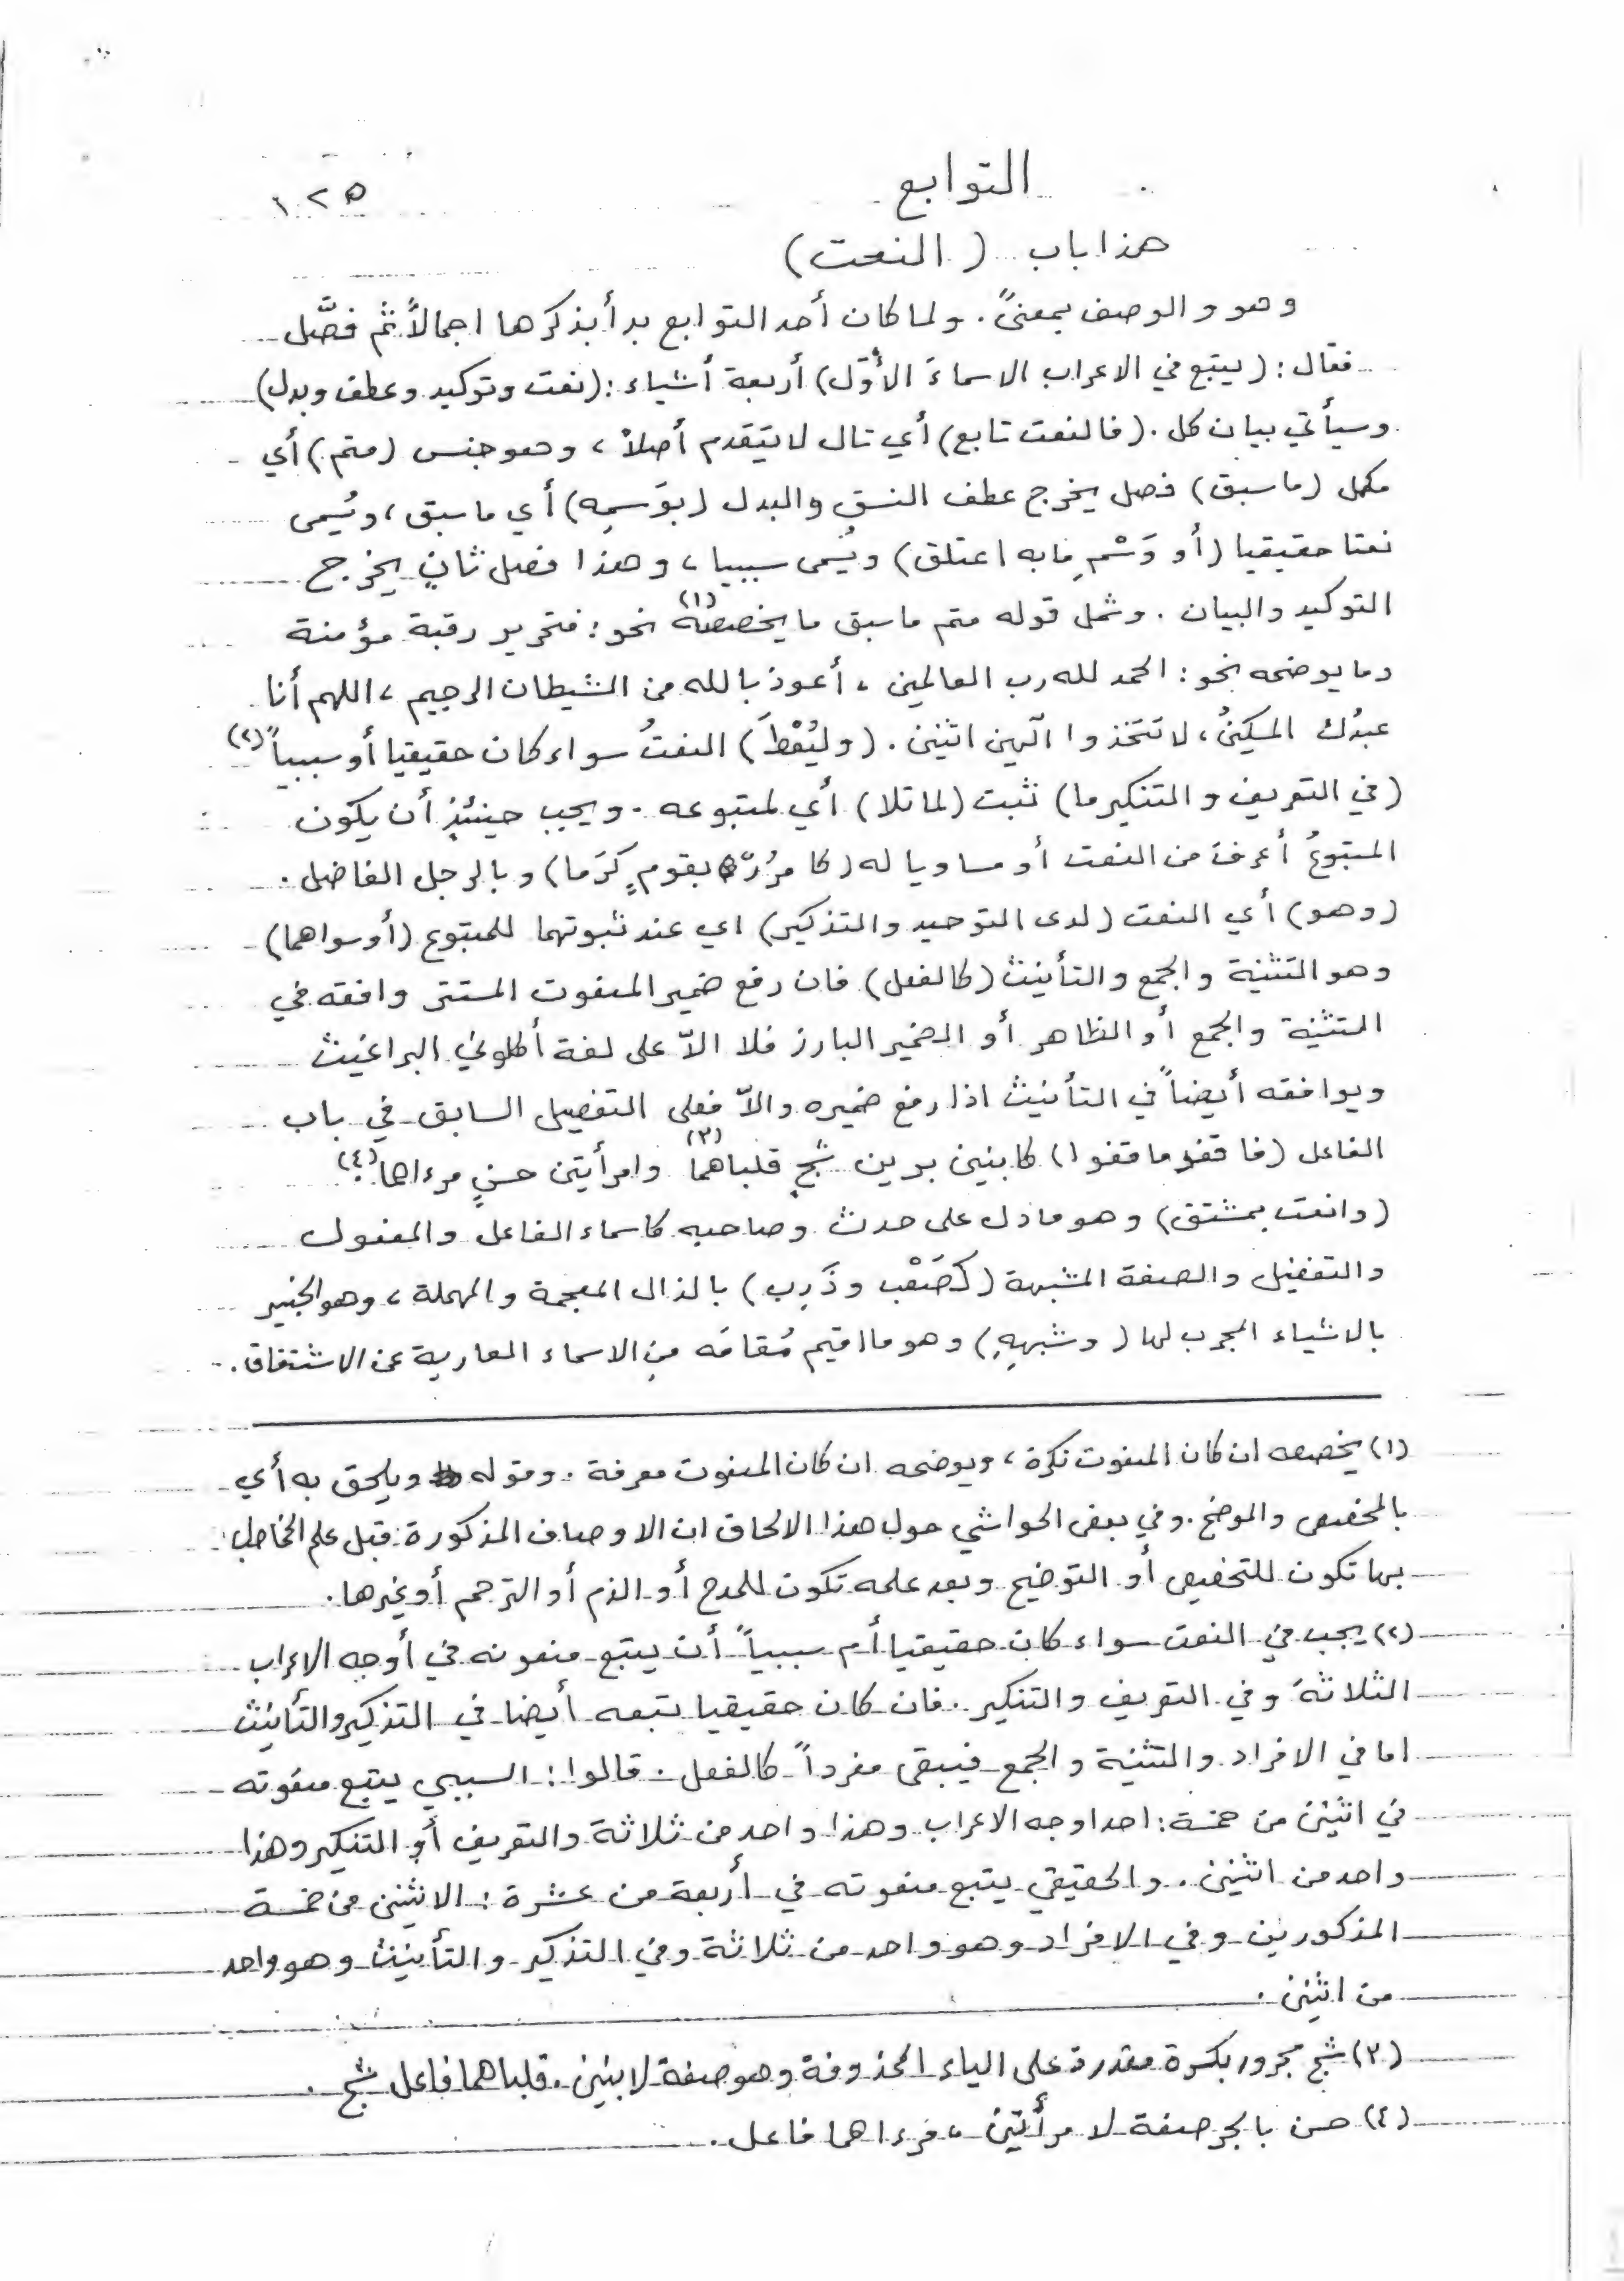 التوابع
١٢٥
هذا باب (النعت)
وهو والوصف بمعنىً. ولما كان أحد التوابع بدأ بذكرها اجمالاً ثم فصَّل
فقال: (يتبع في الاعراب الاسماءَ الأُوَل) أربعة أشياء: (نعت وتوكيد وعطف وبدل)
وسيأتي بيان كل. (فالنعت تابع) أي تال لا يتقدم أصلاً، وهو جنس (متم) أي
مكمل (ما سبق) فصل يخرج عطف النسق والبدل (بوَسمِه) أي ما سبق، ويُسمى
نعتا حقيقيا (أو وَسْمِ ما به اعتلق) ويُسمى سببيا، وهذا فصل ثانٍ يخرج
التوكيد والبيان. وشمل قوله متم ما سبق ما يخصصه (١) نحو: فتحرير رقبة مؤمنة
وما يوضحه نحو: الحمد لله رب العالمين، أعوذ بالله من الشيطان الرجيم، اللهم أنا
عبدُك المسكينُ، لا تَتَخذوا الَهين اثنين. (وليُعْطَ) النعتُ سواء كان حقيقيا أو سببياً (٢)
(في التعريف والتنكير ما) ثبت (لما تلا) أي لمتبوعه. ويجب حينئذٍ أن يكون
المتبوعُ أعرفَ من النعت أو مساويا له (كا مرُرْ بقومٍ كَرَما) وبالرجل الفاضل.
(وهو) أي النعت (لدى التوحيد والتذكير) اي عند ثبوتهما للمتبوع (أو سواهما)
وهو التثنية والجمع والتأنيث (كالفعل) فان رفع ضمير المنعوت المستتر وافقه في
التثنية والجمع أو الظاهر أو الضمير البارز فلا الاّ على لغة أكلوني البراغيث
ويوافقه أيضاً في التأنيث اذا رفع ضميره والاّ فعلى التفصيل السابق في باب
الفاعل (فا قفُ ما قفوا) كابنين برين شجٍ قلباهما (٣) وامرأيتن حسنٍ مرءاهما (٤)
(وانعت بمشتق) وهو ما دل على حدث وصاحبه كاسماء الفاعل والمفعول
والتفضيل والصفة المشبهة (كَصَعْب وذَرِب) بالذال المعجمة والمهملة، وهو الخبير
بالاشياء المجرب لها (وشبهِهِ) وهو ما اقيم مُقامَه مِن الاسماء العارية عن الاشتقاق.
(١) يخصصه ان كان المنعوت نكرة، ويوضحه ان كان المنعوت معرفة. وقوله ويلحق به أي
بالمخصص والموضح. وفي بعض الحواشي حول هذا الالحاق ان الاوصاف المذكورة قبل علم المخاطب
بها تكون للتخصيص أو التوضيح وبعد علمه تكون للمدح أو الذم أو الترحم أو غيرها.
(٢) يجب في النعت سواء كان حقيقيا أم سببياً أن يتبع منعوته في أوجه الاعراب
الثلاثة وفي التعريف والتنكير. فان كان حقيقيا تبعه أيضا في التذكير والتأنيث
اما في الافراد والتثنية والجمع فيبقى مفرداً كالفعل. قالوا: السببي يتبع منعوته
في اثنين من خمسة: احد اوجه الاعراب وهذا واحد من ثلاثة والتعريف أو التنكير وهذا
واحد من اثنين. والحقيقي يتبع منعوته في أربعة من عشرة: الاثنين من خمسة
المذكورين وفي الافراد وهو واحد من ثلاثة وفي التذكير والتأنيث وهو واحد
من اثنين.
(٣) شج مجرور بكسرة مقدرة على الياء المحذوفة وهو صفة لابنين. قلباهما فاعل شج.
(٤) حسن بالجر صفة لا مرأتين، مرءاهما فاعل.